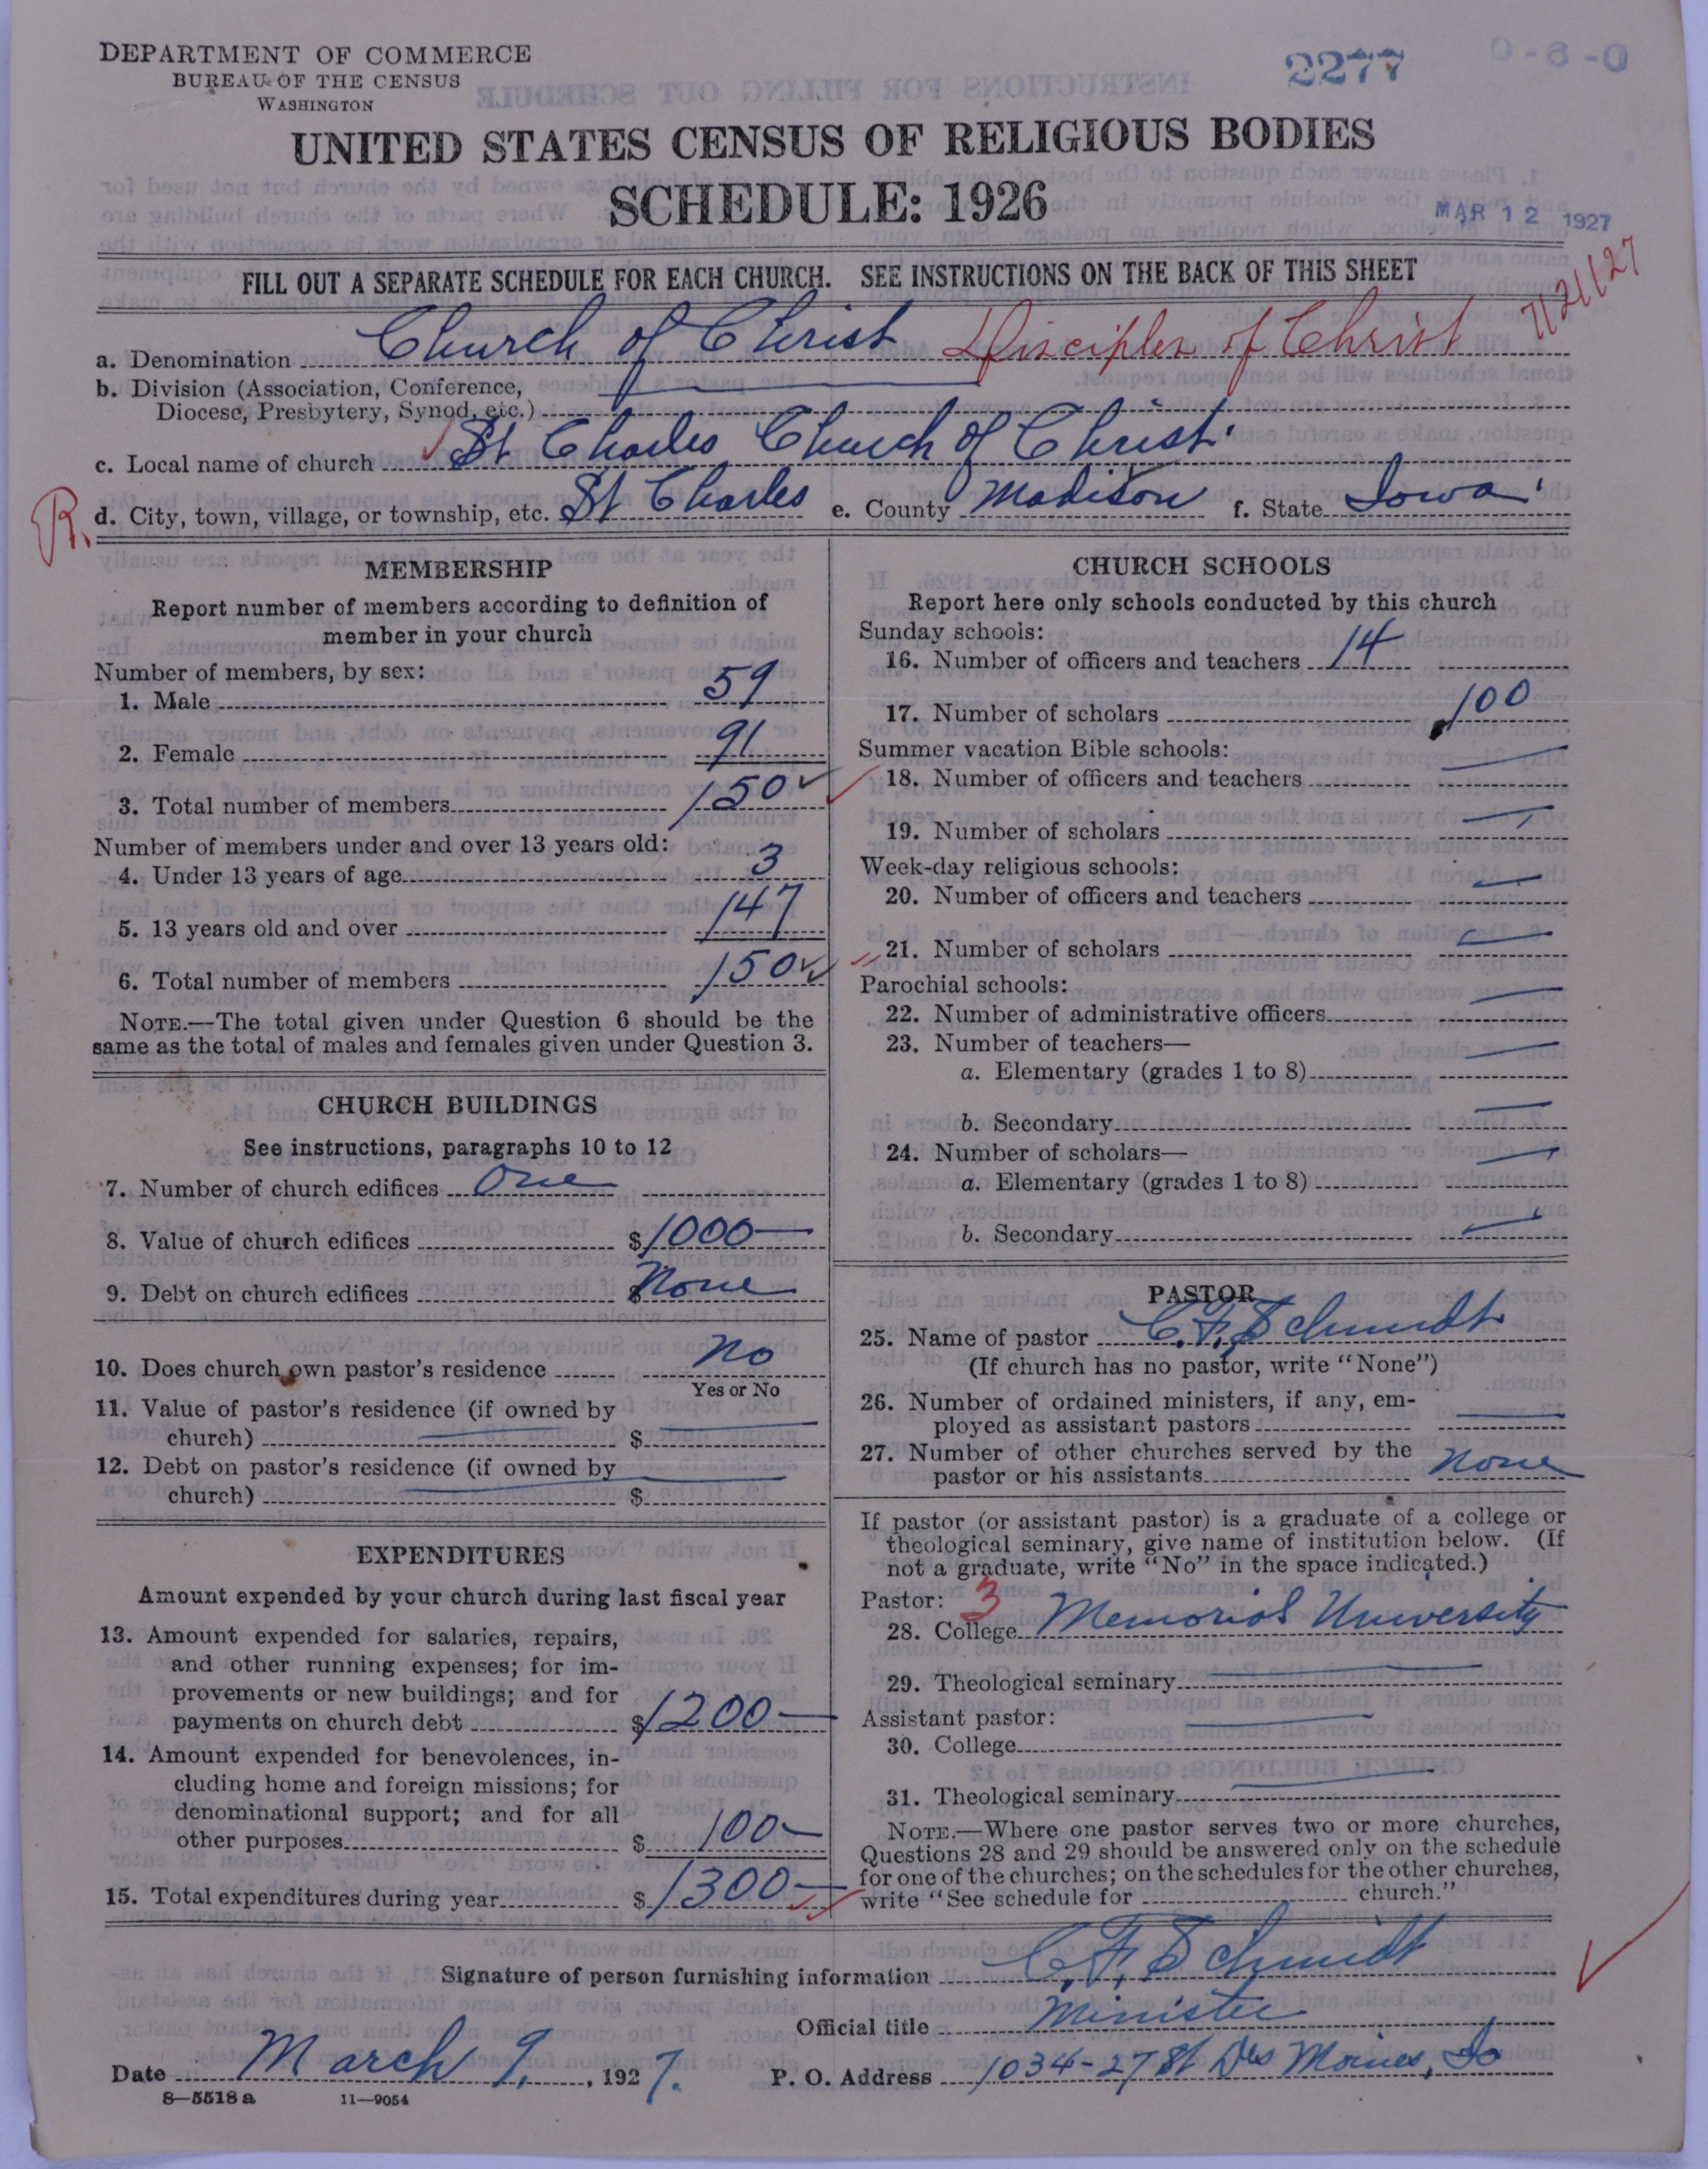 DEPARTMENT OF COMMERCE
BUREAU OF THE CENSUS
WASHINGTON
2277
0-6-0
UNITED STATES CENSUS OF RELIGIOUS BODIES
SCHEDULE: 1926
MAR 12 1927
7/21/27
FILL OUT A SEPARATE SCHEDULE FOR EACH CHURCH. SEE INSTRUCTIONS ON THE BACK OF THIS SHEET
a. Denomination Church of Christ Disciples of Christ
b. Division (Association, Conference,
Diocese, Presbytery, Synod, etc.)
c. Local name of church St Charles Church of Christ.
R. d. City, town, village, or township, etc. St Charles e. County Madison f. State Iowa.
MEMBERSHIP
Report number of members according to definition of
member in your church
Number of members, by sex:
1. Male 59
2. Female 91
3. Total number of members 150
Number of members under and over 13 years old:
4. Under 13 years of age 3
5. 13 years old and over 147
6. Total number of members 150
NOTE.—The total given under Question 6 should be the
same as the total of males and females given under Question 3.
CHURCH BUILDINGS
See instructions, paragraphs 10 to 12
7. Number of church edifices One
8. Value of church edifices $1000—
9. Debt on church edifices $ None
10. Does church own pastor's residence No
Yes or No
11. Value of pastor's residence (if owned by
church) $
12. Debt on pastor's residence (if owned by
church) $
EXPENDITURES
Amount expended by your church during last fiscal year
13. Amount expended for salaries, repairs,
and other running expenses; for im-
provements or new buildings; and for
payments on church debt $1200—
14. Amount expended for benevolences, in-
cluding home and foreign missions; for
denominational support; and for all
other purposes $ 100—
15. Total expenditures during year $1300—
CHURCH SCHOOLS
Report here only schools conducted by this church
Sunday schools:
16. Number of officers and teachers 14
17. Number of scholars 100
Summer vacation Bible schools:
18. Number of officers and teachers —
19. Number of scholars —
Week-day religious schools:
20. Number of officers and teachers —
21. Number of scholars —
Parochial schools:
22. Number of administrative officers —
23. Number of teachers—
a. Elementary (grades 1 to 8) —
b. Secondary —
24. Number of scholars—
a. Elementary (grades 1 to 8) —
b. Secondary —
PASTOR
25. Name of pastor C. F. Schmidt
(If church has no pastor, write "None")
26. Number of ordained ministers, if any, em-
ployed as assistant pastors —
27. Number of other churches served by the
pastor or his assistants None
If pastor (or assistant pastor) is a graduate of a college or
theological seminary, give name of institution below. (If
not a graduate, write "No" in the space indicated.)
Pastor: 3
28. College Memorial University
29. Theological seminary —
Assistant pastor:
30. College —
31. Theological seminary —
NOTE.—Where one pastor serves two or more churches,
Questions 28 and 29 should be answered only on the schedule
for one of the churches; on the schedules for the other churches,
write "See schedule for church."
Signature of person furnishing information C. F. Schmidt
Official title Minister
Date March 9, 1927. P. O. Address 1034-27 St Des Moines, Io
8—5518 a 11—9054